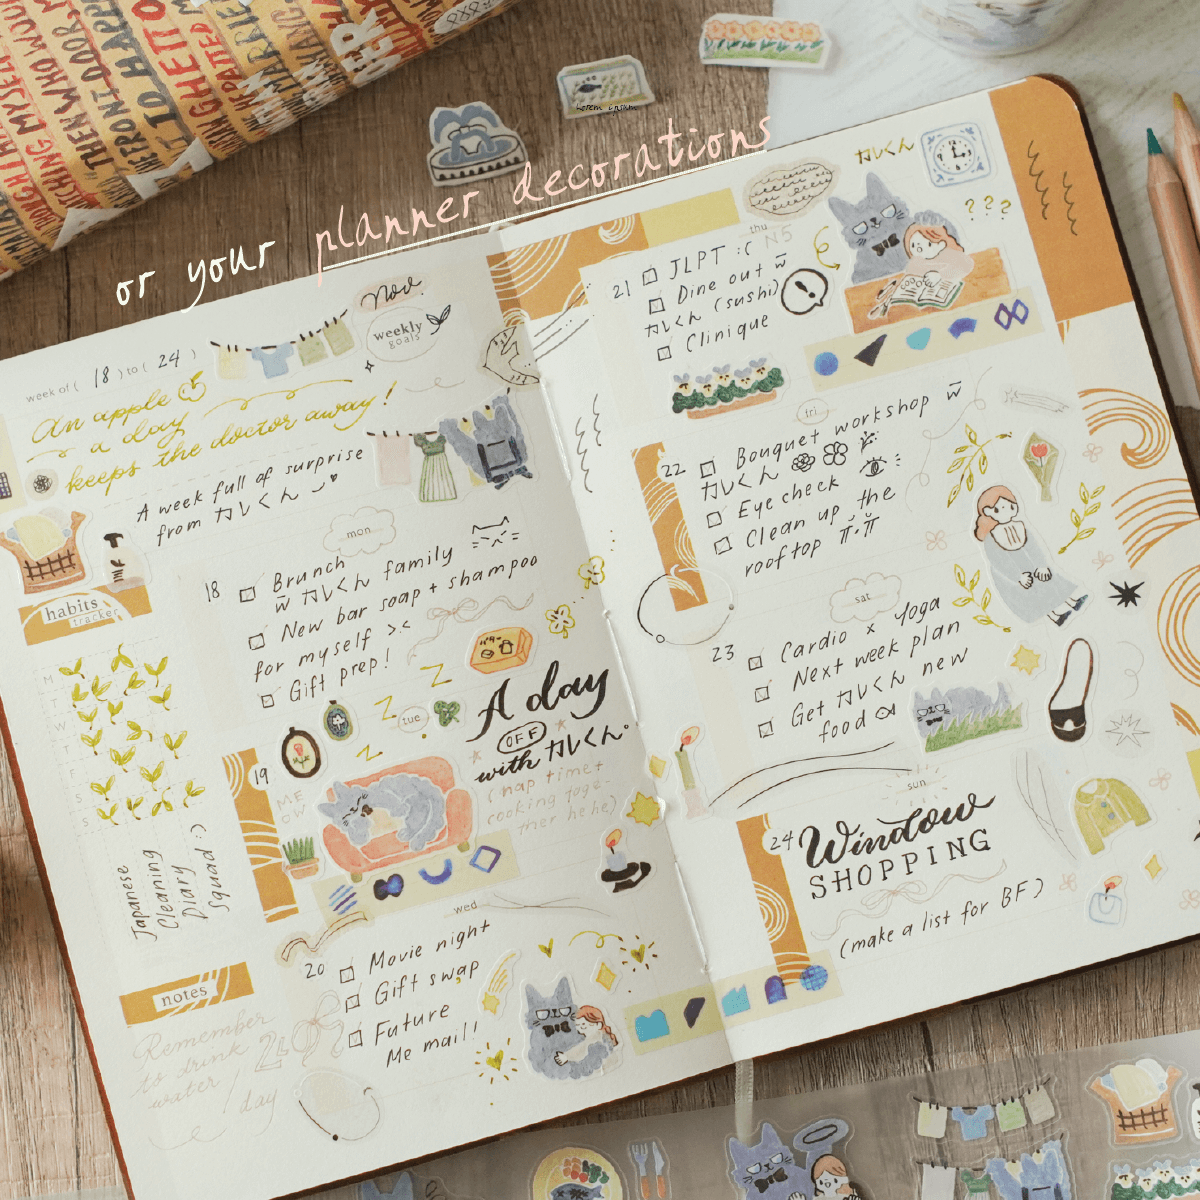 or your planner decorations
Lorem ipsum
Nov.
weekly
goals
week of ( 18 ) to ( 24 )
An apple
a day
keeps the doctor away!
A week full of surprise
from カレくん
habits
tracker
M
T
W
T
F
S
S
Japanese
Cleaning
Diary
Squad :)
notes
Remember
to drink
water
2L
/ day
mon
18
Brunch
w カレくん family
New bar soap + shampoo
for myself >.<
Gift prep!
tue
19
MEOW
A day
OFF
with カレくん
(nap time +
cooking toge-
ther hehe)
wed
20
Movie night
Gift swap
Future
Me mail!
thu
21
JLPT :( N5
Dine out w
カレくん (sushi)
Clinique
カレくん
???
fri
22
Bouquet workshop w
カレくん
Eye check
Clean up the
rooftop
sat
23
Cardio x Yoga
Next week plan
Get カレくん new
food
sun
24
Window
SHOPPING
(make a list for BF)